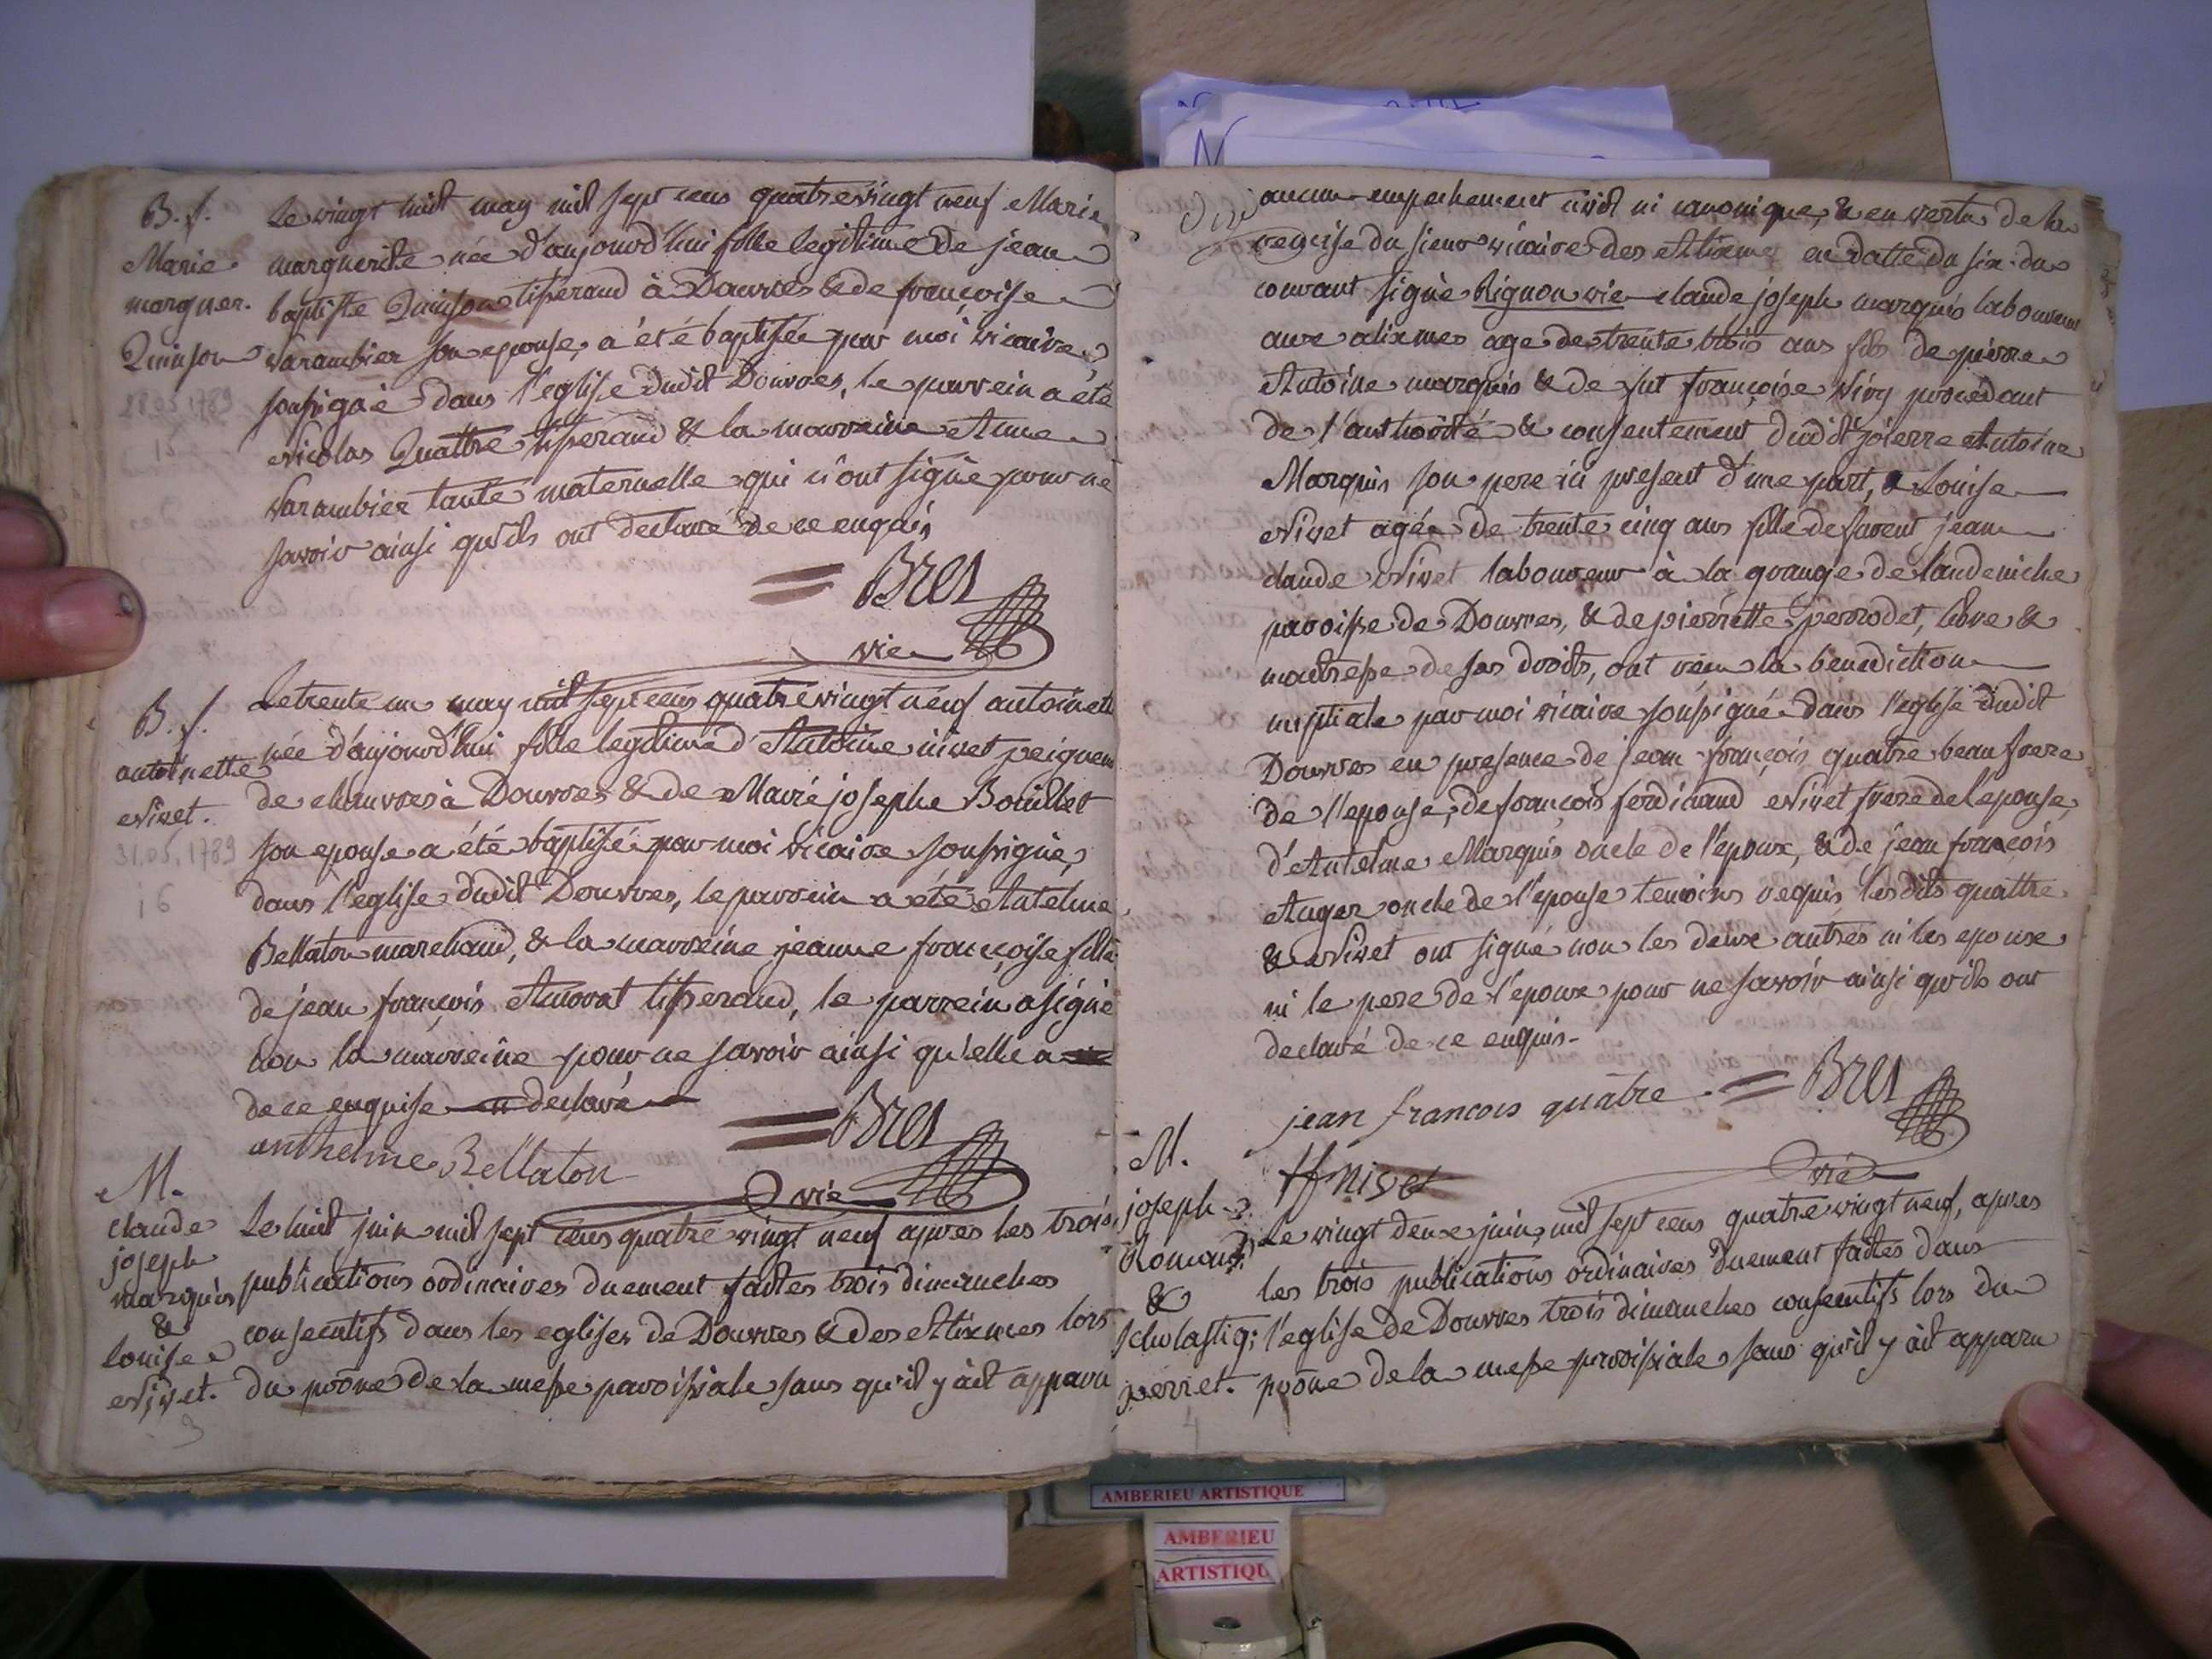 B. f.
Marie
marguer.
Quinson
28.05.1789
15
Le vingt huit may mil sept cens quatrevingt neuf Marie
marguerite née d'aujourd'hui fille legitime de jean
baptiste Quinson tisserand à Douvres & de françoise
Varambier son epouse, a été baptisée par moi vicaire
soussigné dans l'eglise dudit Douvres, le parrein a été
Nicolas Quattre tisserand & la marreine Anne
Varambier tante maternelle qui n'ont signé pour ne
savoir ainsi qu'ils ont declaré de ce enquis
Bret
vic
B. f.
antoinette
Nivet.
31.05.1789
16
Le trente un may mil sept cens quatrevingt neuf antoinette
née d'aujourd'hui fille legitime d'Antoine nivet peigneur
de chanvres à Douvres & de Marie josephe Bouillet
son epouse a été baptisé par moi vicaire soussigné,
dans l'eglise dudit Douvres, le parrein a été Antelme
Bellaton marchand, & la marreine jeanne françoise fille
de jean françois tisserand, le parrein a signé
non la marreine pour ne savoir ainsi qu'elle a
de ce enquise declaré
Bret
anthelme Bellaton
vic
M.
claude
joseph
marquis
&
louise
Nivet.
3
Le huit juin mil sept cens quatre vingt neuf apres les trois
publications ordinaires duement faites trois dimanches
consecutifs dans les eglises de Douvres & des Alixmes lors
du prône de la messe paroissiale sans qu'il y ait apparu
aucun empechement civil ni canonique, & en vertu de la
remise du sieur vicaire des Alixmes en datte du six du
courant signé Rignon vic claude joseph marquis laboureur
aux alixmes age de trente trois ans fils de pierre
Antoine marquis & de fut françoise Viry procedant
de l'authorité & consentement dudit pierre Antoine
Marquis son pere ici present d'une part, & Louise
Nivet agée de trente cinq ans fille defarent jean
claude Nivet laboureur à la grange de laudeniche
paroisse de Douvres, & de pierrette perrodet, libre &
maitresse de ses droits, ont reçu la benediction
nuptiale par moi vicaire soussigné dans l'eglise dudit
Douvres en presence de jean françois quatre beau frere
de l'epouse, de françois ferdinand Nivet frere de l'epouse,
d'Antelme Marquis oncle de l'epoux, & de jean françois
Auger oncle de l'epouse temoins requis lesdits quattre
& Nivet ont signé non les deux autres ni les epoux
ni le pere de l'epoux pour ne savoir ainsi qu'ils ont
declaré de ce enquis.
jean francois quatre
Bret
ff nivet
vic
M.
joseph
Romand
&
scholastiq:
perret.
4
Le vingt deux juin, mil sept cens quatre vingt neuf, apres
les trois publications ordinaires duement faites dans
l'eglise de Douvres trois dimanches consecutifs lors du
prône de la messe paroissiale sans qu'il y ait apparu
AMBERIEU ARTISTIQUE
AMBERIEU
ARTISTIQU